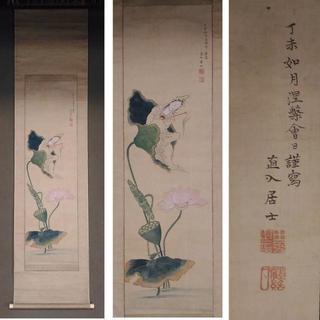 丁未如月涅槃會日謹寫
直入居士